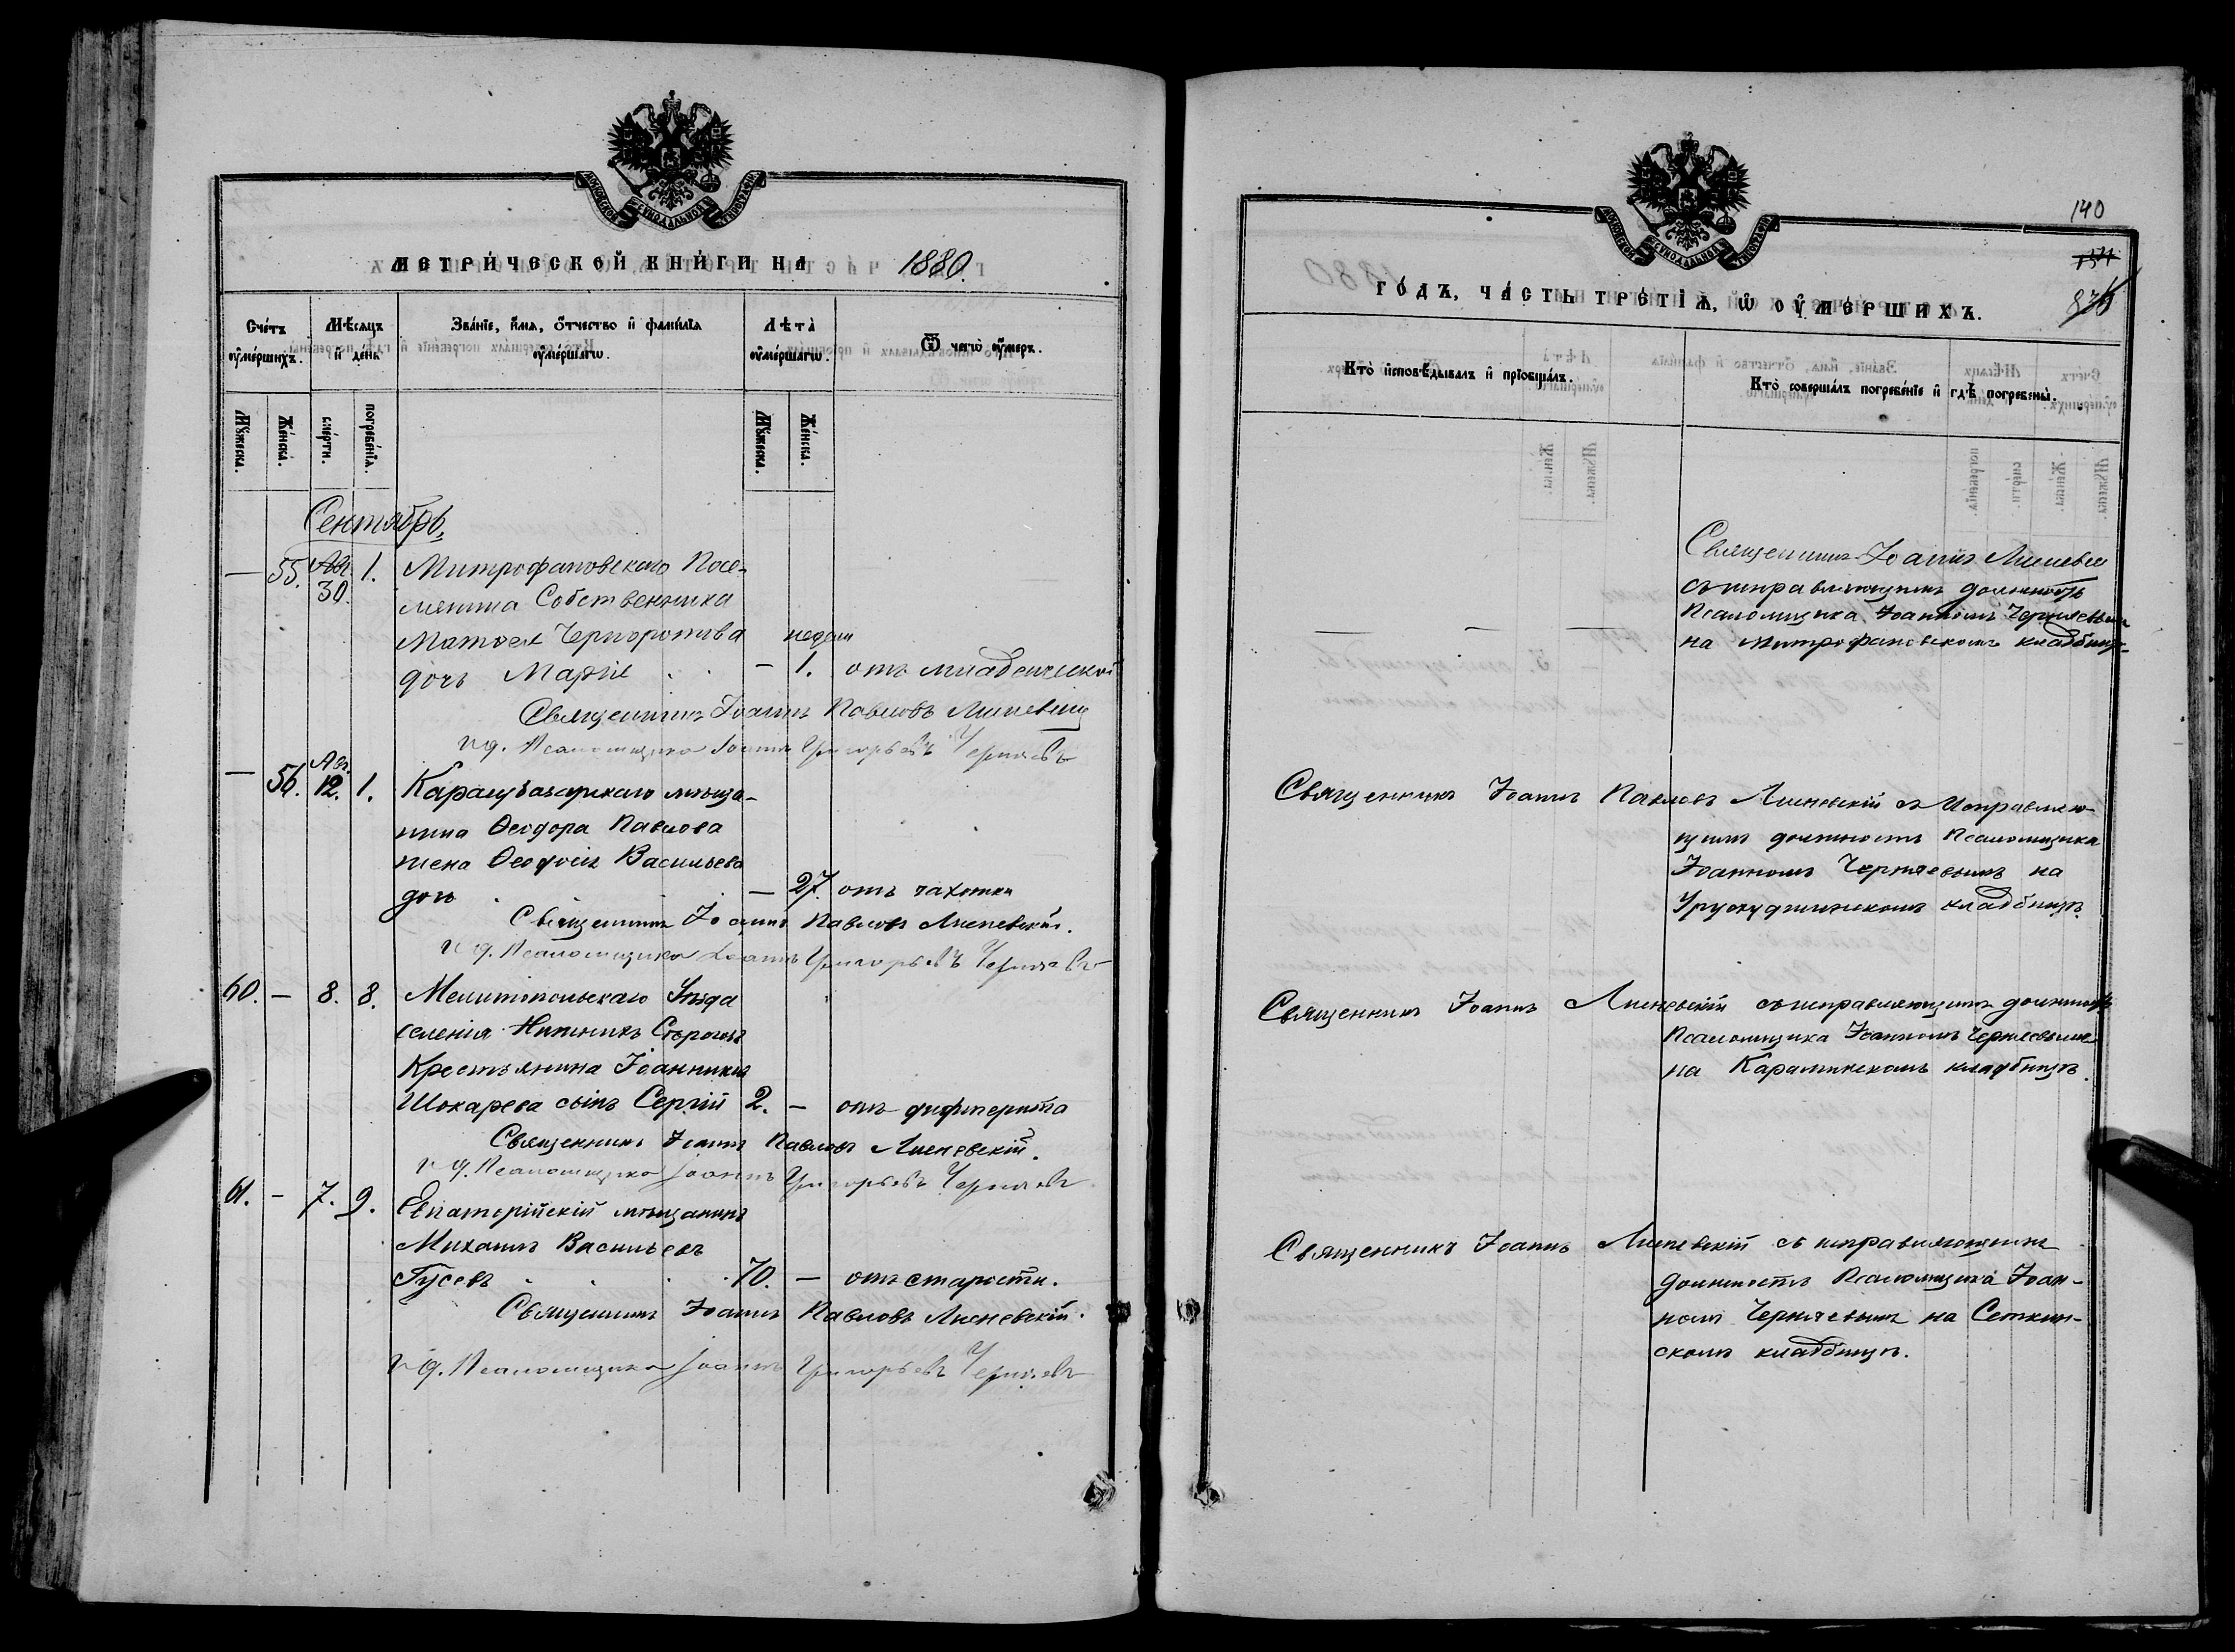 МОСКОВСКОЙ СѴНОДАЛЬНОЙ ТИПОГРАФІИ
МЕТРИ́ЧЕСКОЙ КНИ́ГИ НА 1880.
Сче́тъ ᲂу҆ме́ршихъ.
Мѣ́сяцъ и҆ де́нь
Зва́нїе, и҆́мѧ, ѻ҆́тчество и҆ фамилїѧ ᲂу҆ме́ршагѡ.
Лѣта̀ ᲂу҆ме́ршагѡ.
Ѿ чегѡ̀ ᲂу҆́меръ.
Мꙋ́жеска.
Же́нска.
сме́рти.
погребе́нїѧ.
Мꙋ́жеска.
Же́нска.
Сентябрь,
— 55. Авг. 30. 1. Митрофановскаго Посе-
лянина Собственника
Матоея недели
дочь Марія . . — 1. отъ младенческой
Священникъ Іоаннъ Павловъ Лисневскій
и д. Псаломщика Іоаннъ Григорьевъ Черняевъ
— 56. Авг. 12. 1. Карасубазарскаго мѣща-
нина Ѳеодора Павлова
жена Ѳеодосія Васильева
дочь . . — 27. отъ чахотки
Священникъ Іоаннъ Павловъ Лисневскій.
и д. Псаломщика Іоаннъ Григорьевъ Черняевъ
60. — 8. 8. Мелитопольскаго Уѣзда
селенія Нижнихъ Сѣрогозъ
Крестьянина Іоанникія
Шокарева сынъ Сергій 2. — отъ дифтерита
Священникъ Іоаннъ Павловъ Лисневскій.
и д. Псаломщика Іоаннъ Григорьевъ Черняевъ
61. — 7. 9. Евпаторійскій мѣщанинъ
Михаилъ Васильевъ
Гусевъ . . . . 70. — отъ старости.
Священникъ Іоаннъ Павловъ Лисневскій.
и д. Псаломщика Іоаннъ Григорьевъ Черняевъ
140
МОСКОВСКОЙ СѴНОДАЛЬНОЙ ТИПОГРАФІИ
ГО́ДЪ, ЧА́СТЬ ТРЕ́ТЇѦ, Ѡ҆ ОУ҆МЕ́РШИХЪ.
Кто̀ и҆сповѣ́дывалъ и҆ прїѡбща́лъ.
Кто̀ соверша́лъ погребе́нїе и҆ гдѣ̀ погребены̀.
Священникъ Іоаннъ
съ исправляющимъ должность
Псаломщика Іоанномъ Черняевымъ
— — — на Митрофановскомъ кладбищѣ
Священникъ Іоаннъ Павловъ Лисневскій съ Исправляю-
щимъ должность Псаломщика
Іоанномъ Черняевымъ на
кладбищѣ.
Священникъ Іоаннъ Лисневскій съ исправляющимъ должность
Псаломщика Іоанномъ Черняевымъ
на кладбищѣ.
Священникъ Іоаннъ Лисневскій съ исправляющимъ
должность Псаломщика Іоан-
номъ Черняевымъ на Сеткин-
скомъ кладбищѣ.